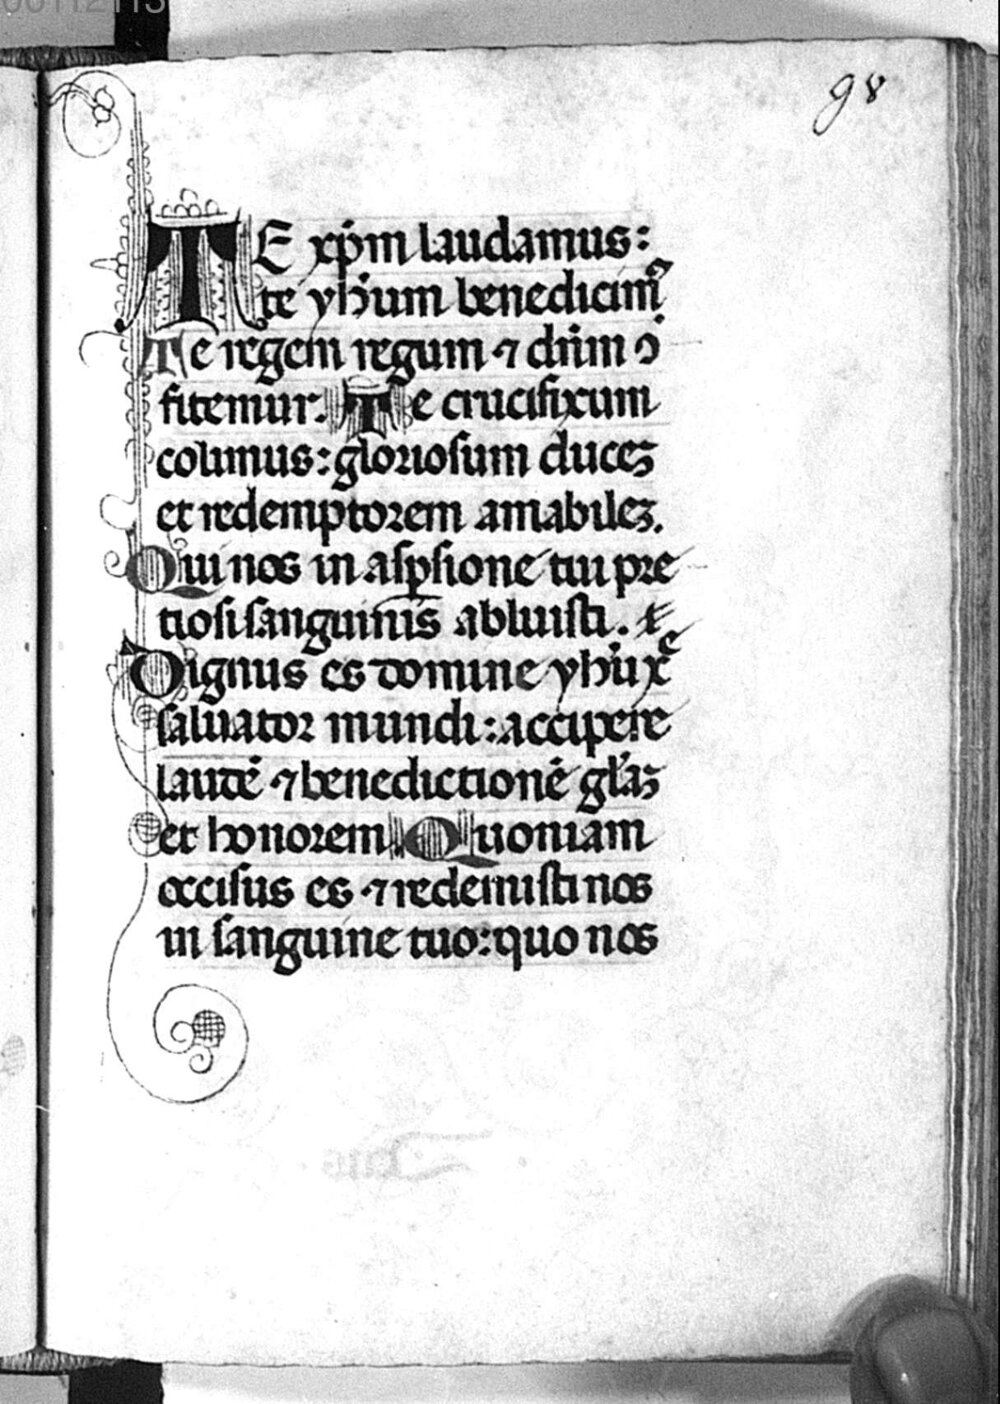 00112113
98
TE xp̄m laudamus:
te yhūm benedicim᷒
Te regem regum ⁊ dn̄m ↄ̄
fitemur. Te crucifixum
colimus: gloriosum duceꝫ
et redemptorem amabileꝫ.
Qui nos in aspsione tui pre
tiosi sanguinis abluisti. ⁊c̄
Dignus es domine yhū xp̄e
saluator mundi: accipere
laudē ⁊ benedictionē gl̄iaꝫ
et honorem Quoniam
occisus es ⁊ redemisti nos
in sanguine tuo: quo nos